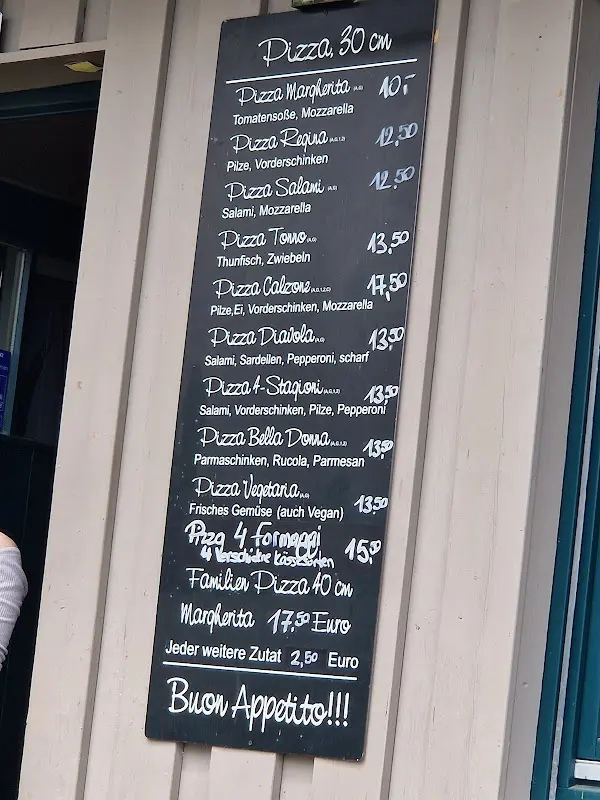 Pizza, 30 cm
Pizza Margherita (A,G) 10,-
Tomatensoße, Mozzarella
Pizza Regina (A,G,1,2) 12,50
Pilze, Vorderschinken
Pizza Salami (A,G) 12,50
Salami, Mozzarella
Pizza Tonno (A,G) 13,50
Thunfisch, Zwiebeln
Pizza Calzone (A,G,1,2,C) 17,50
Pilze,Ei, Vorderschinken, Mozzarella
Pizza Diavola (A,G) 13,50
Salami, Sardellen, Pepperoni, scharf
Pizza 4-Stagioni (A,G,1,2) 13,50
Salami, Vorderschinken, Pilze, Pepperoni
Pizza Bella Donna (A,G,1,2) 13,50
Parmaschinken, Rucola, Parmesan
Pizza Vegetaria (A,G) 13,50
Frisches Gemüse (auch Vegan)
Pizza 4 Formaggi 15,50
4 Verschidne Kässesorten
Familien Pizza 40 cm
Margherita 17,50 Euro
Jeder weitere Zutat 2,50 Euro
Buon Appetito!!!